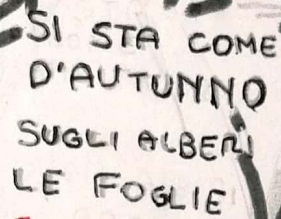 SI STA COME
D'AUTUNNO
SUGLI ALBERI
LE FOGLIE